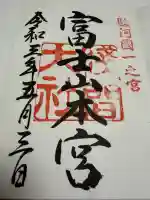 駿河國一之宮
富士山本宮
浅間
大社
令和三年五月三日